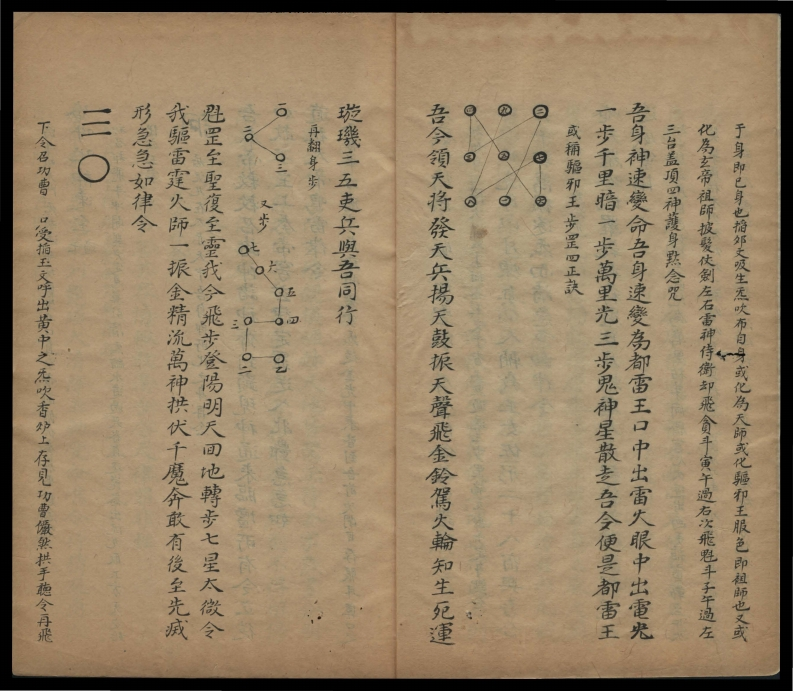 于身即已身也稲外又吸生炁吹布自身或化為天師或化驅邪王服色即祖師也又或
化為玄帝祖師披髮仗劍左右雷神侍衛却飛貪斗寅午過右次飛魁斗子午過左
三台盖頂四神護身黙念咒
吾身神速變命吾身速變為都雷王口中出雷火眼中出電光
一步千里暗二步萬里光三步鬼神星散走吾今便是都雷王
或稱驅邪王步罡四正訣
二 九 四
七 五 三
六 一 八
吾今領天將發天兵揚天鼓振天聲飛金鈴駕火輪知生死運
璇璣三五吏兵與吾同行
再翻身步
一
二
三
又步
七
六
五
四
三
二
乙
魁罡至聖復至靈我今飛步登陽明天回地轉步七星太微令
我驅雷霆火師一振金精流萬神拱伏千魔奔敢有後至先滅
形急急如律令
下令召功曹 口受稲玉文呼出黄中之炁吹香炉上存見功曹儼然拱手聴令再飛